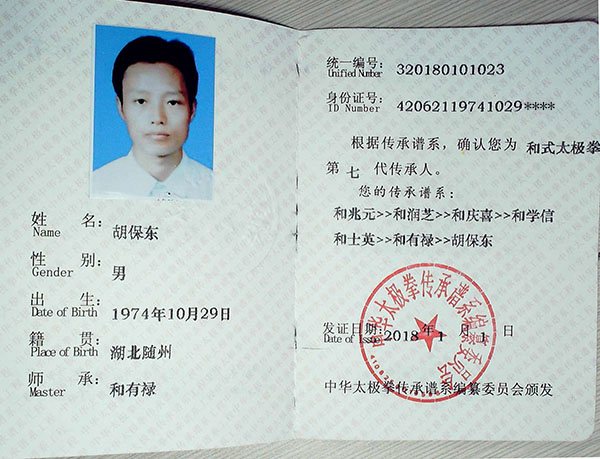 姓 名：胡保东
Name
性 别：男
Gender
出 生：1974年10月29日
Date of Birth
籍 贯：湖北随州
Place of Birth
师 承：和有禄
Master
统一编号：320180101023
Unified Number
身份证号：42062119741029****
ID Number
根据传承谱系，确认您为 和式太极拳
第 七 代传承人。
您的传承谱系：
和兆元>>和润芝>>和庆喜>>和学信
和士英>>和有禄>>胡保东
发证日期：2018 年 1 月 1 日
Date of Issue
中华太极拳传承谱系编纂委员会
中华太极拳传承谱系编纂委员会颁发